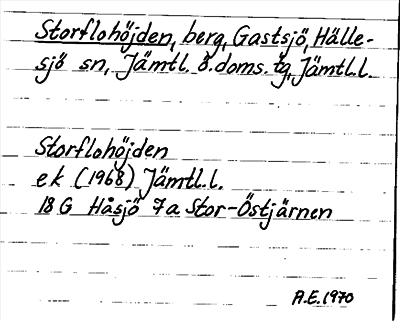 Storflohöjden, berg, Gastsjö, Hälle-
sjö sn, Jämtl. ö. doms. tg, Jämtl.l.
Storflohöjden
ek (1968) Jämtl.l.
18 G Håsjö 7a Stor-Östjärnen
A.E. 1970